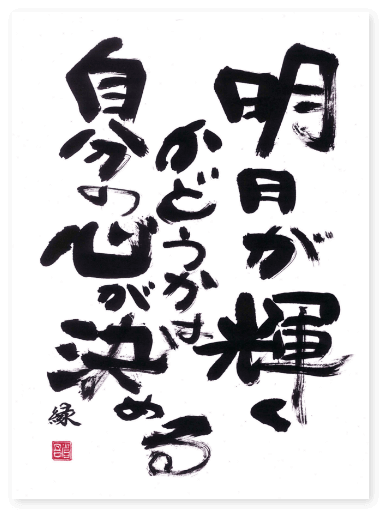 明日が輝く
かどうかは
自分の心が決める
縁